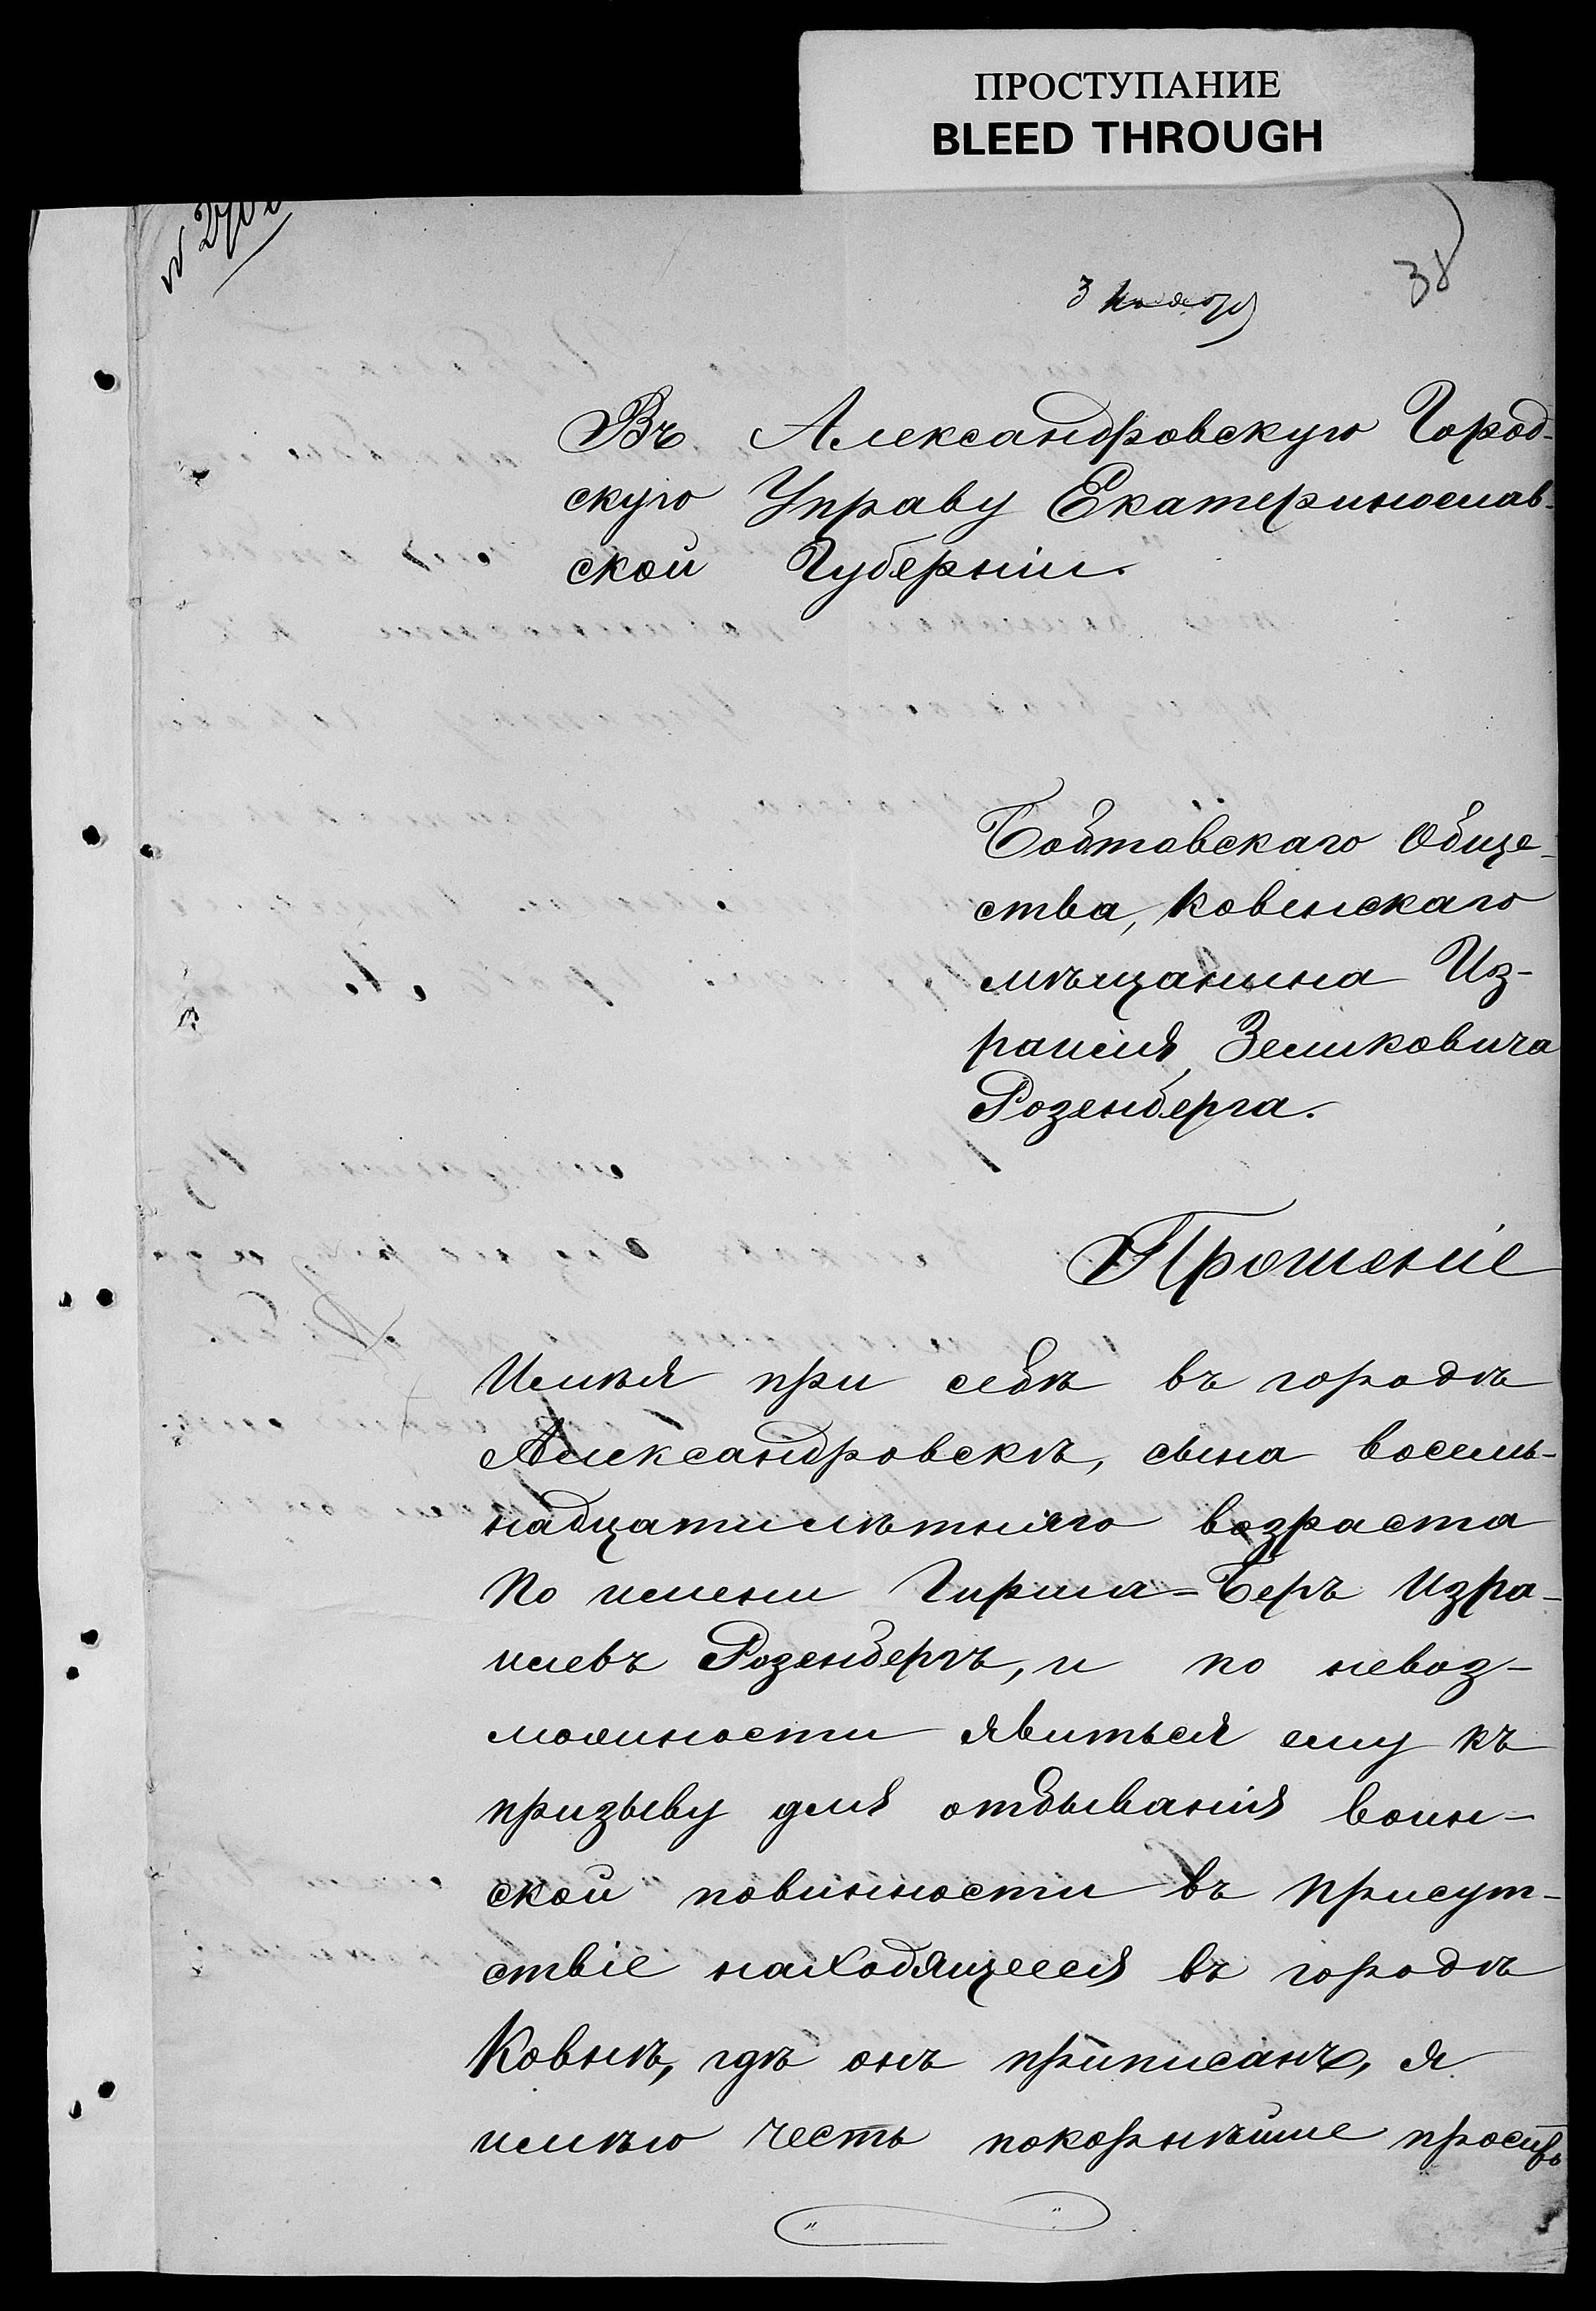 ПРОСТУПАНИЕ
BLEED THROUGH
38
Въ Александровскую Город-
скую Управу Екатеринослав-
ской Губерніи.
Боботовскаго Обще-
ства, Ковенскаго
мѣщанина Из-
раиля Зелиховича
Розенберга.
Прошеніе
Имѣя при себѣ въ городѣ
Александровскѣ, сына восемь-
надцатилѣтняго возраста
по имени Гирша-Беръ Изра-
илевъ Розенбергъ, и по невоз-
можности явиться ему къ
призыву для отбыванія воин-
ской повинности въ присут-
ствіе находящееся въ городѣ
Ковнѣ, гдѣ онъ приписанъ, я
имѣю честь покорнѣйше просить